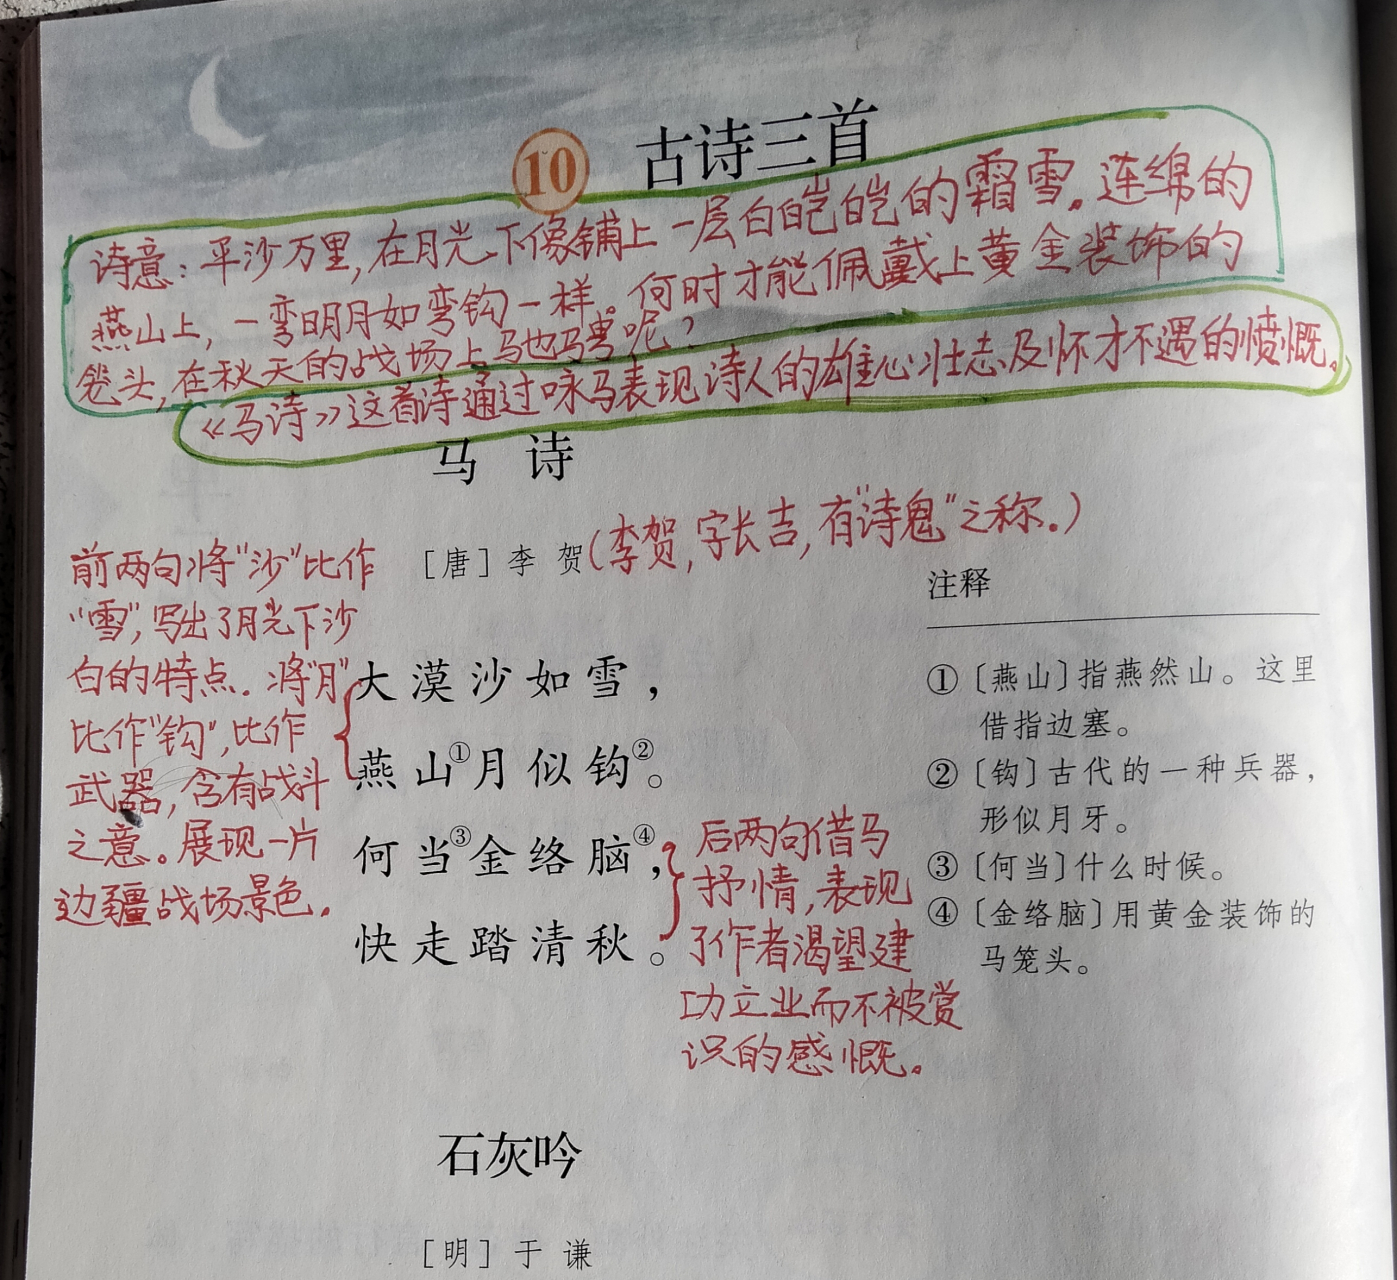 10 古诗三首
诗意：平沙万里，在月光下像铺上一层白皑皑的霜雪。连绵的
燕山上，一弯明月如弯钩一样。何时才能佩戴上黄金装饰的
笼头，在秋天的战场上驰骋呢？
《马诗》这首诗通过咏马表现诗人的雄心壮志及怀才不遇的愤慨。
马 诗
［唐］李 贺（李贺，字长吉，有“诗鬼”之称。）
前两句将“沙”比作
“雪”，写出了月光下沙
白的特点．将“月”
比作“钩”，比作
武器，含有战斗
之意。展现一片
边疆战场景色．
大漠沙如雪，
燕山①月似钩②。
何当③金络脑④，
快走踏清秋。
后两句借马
抒情，表现
了作者渴望建
功立业而不被赏
识的感慨。
注释
①〔燕山〕指燕然山。这里
借指边塞。
②〔钩〕古代的一种兵器，
形似月牙。
③〔何当〕什么时候。
④〔金络脑〕用黄金装饰的
马笼头。
石灰吟
［明］于 谦